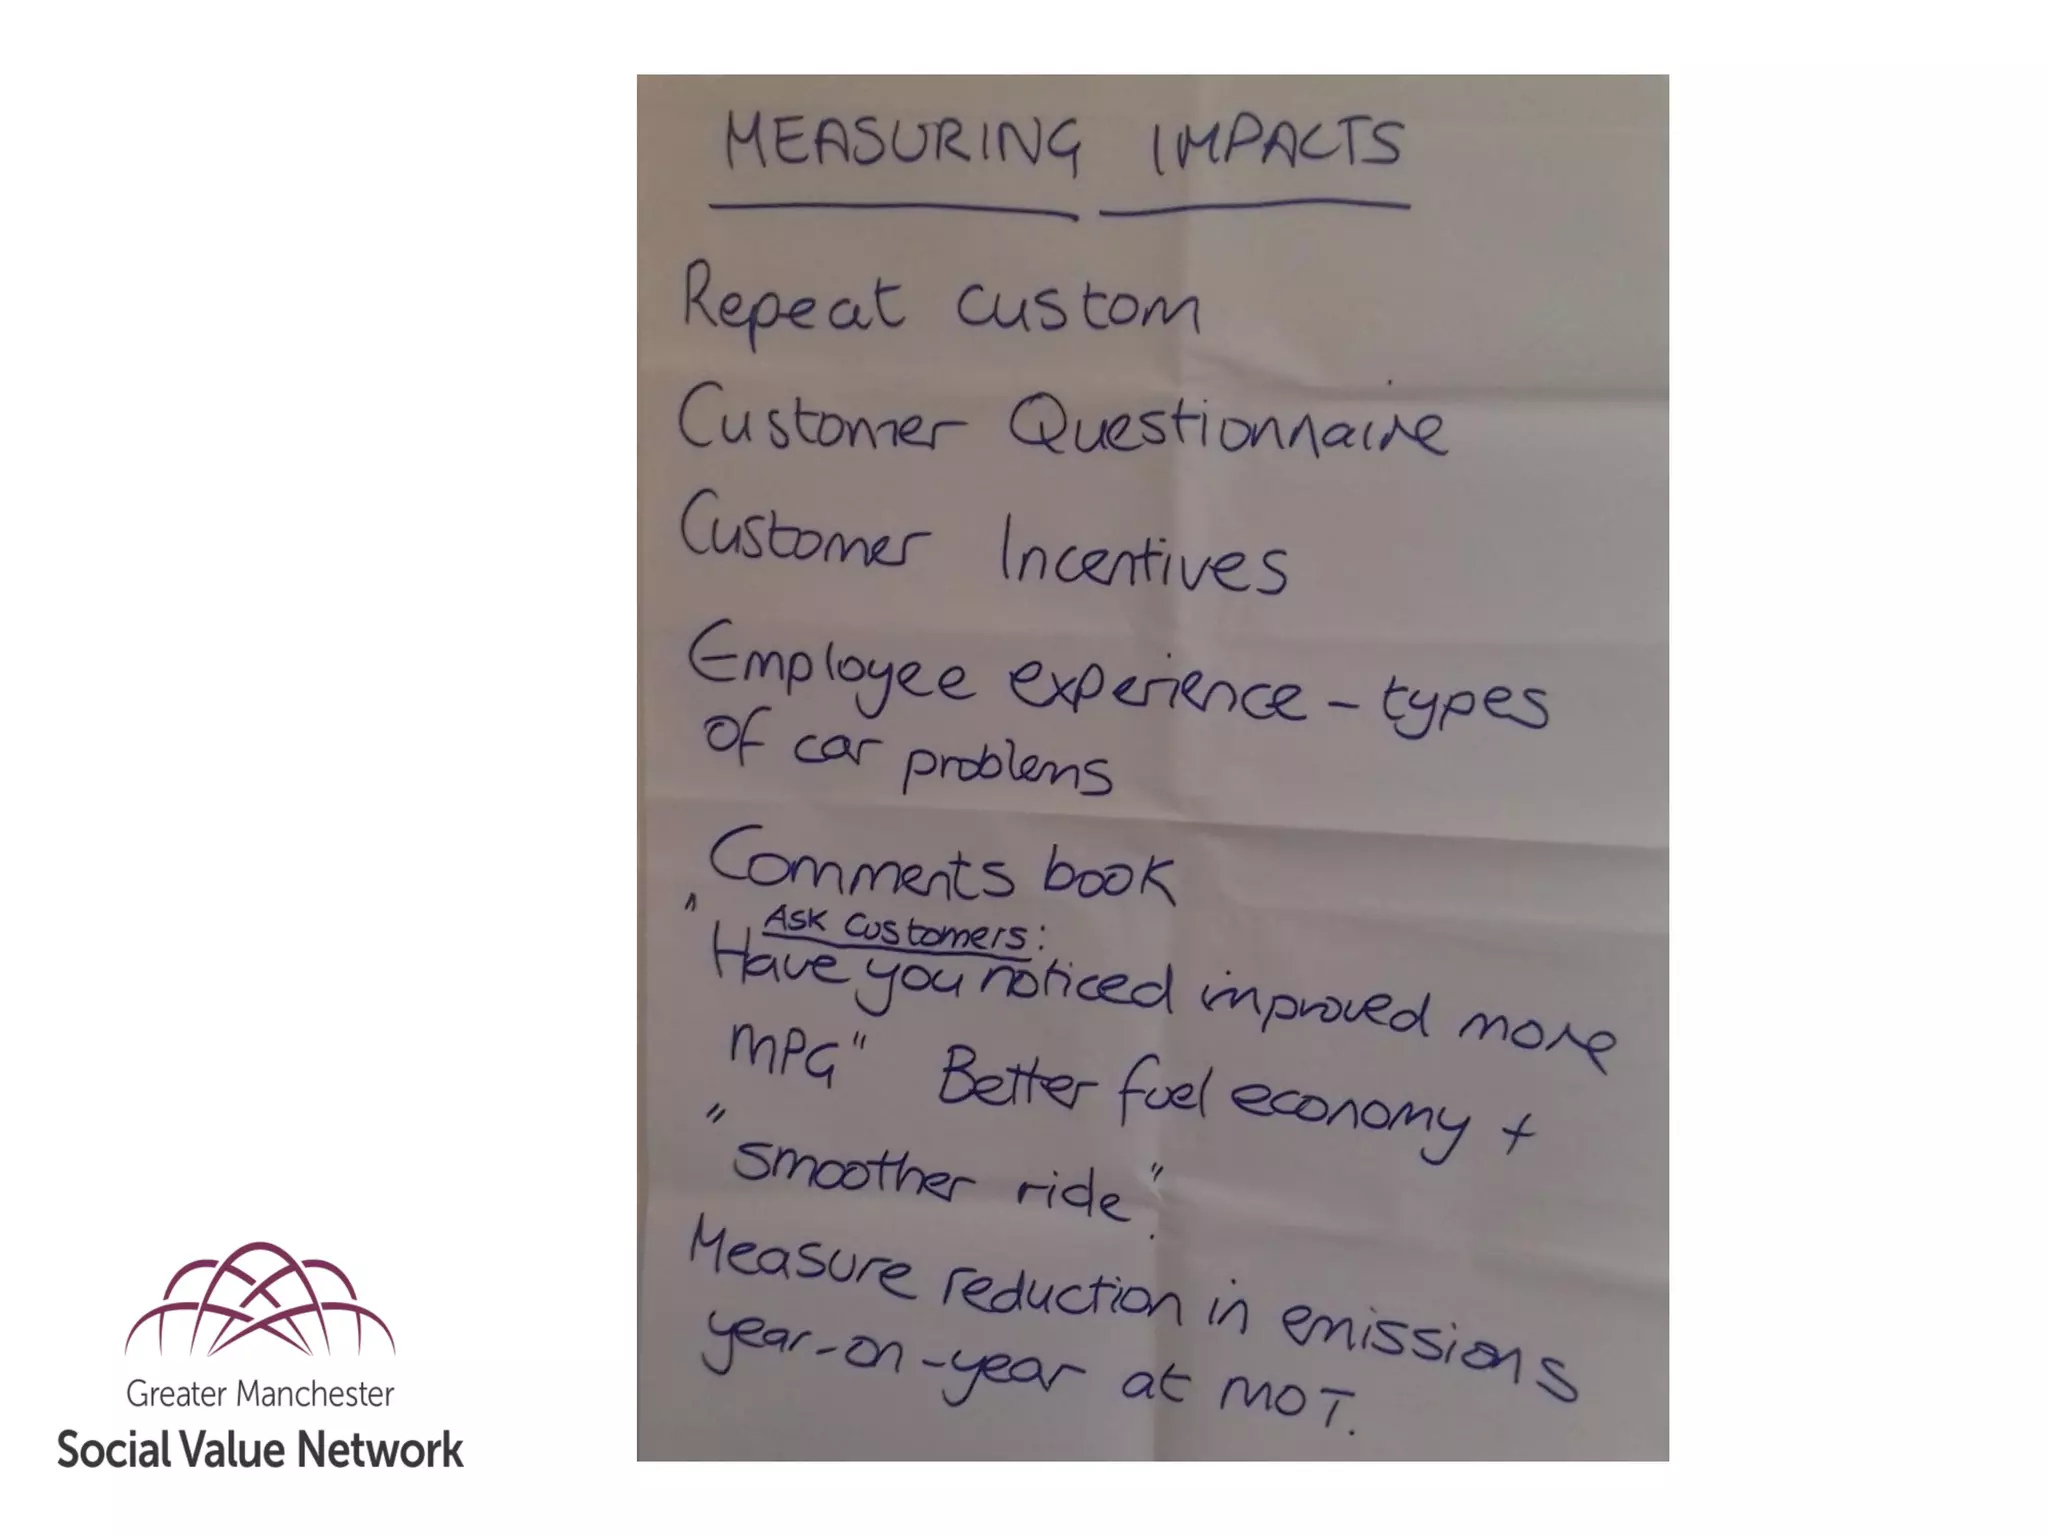 MEASURING IMPACTS
Repeat custom
Customer Questionnaire
Customer Incentives
Employee experience - types
of car problems
Comments book
Ask Customers:
"Have you noticed improved more
MPG" Better fuel economy +
"smoother ride".
Measure reduction in emissions
year-on-year at MOT.
Greater Manchester
Social Value Network